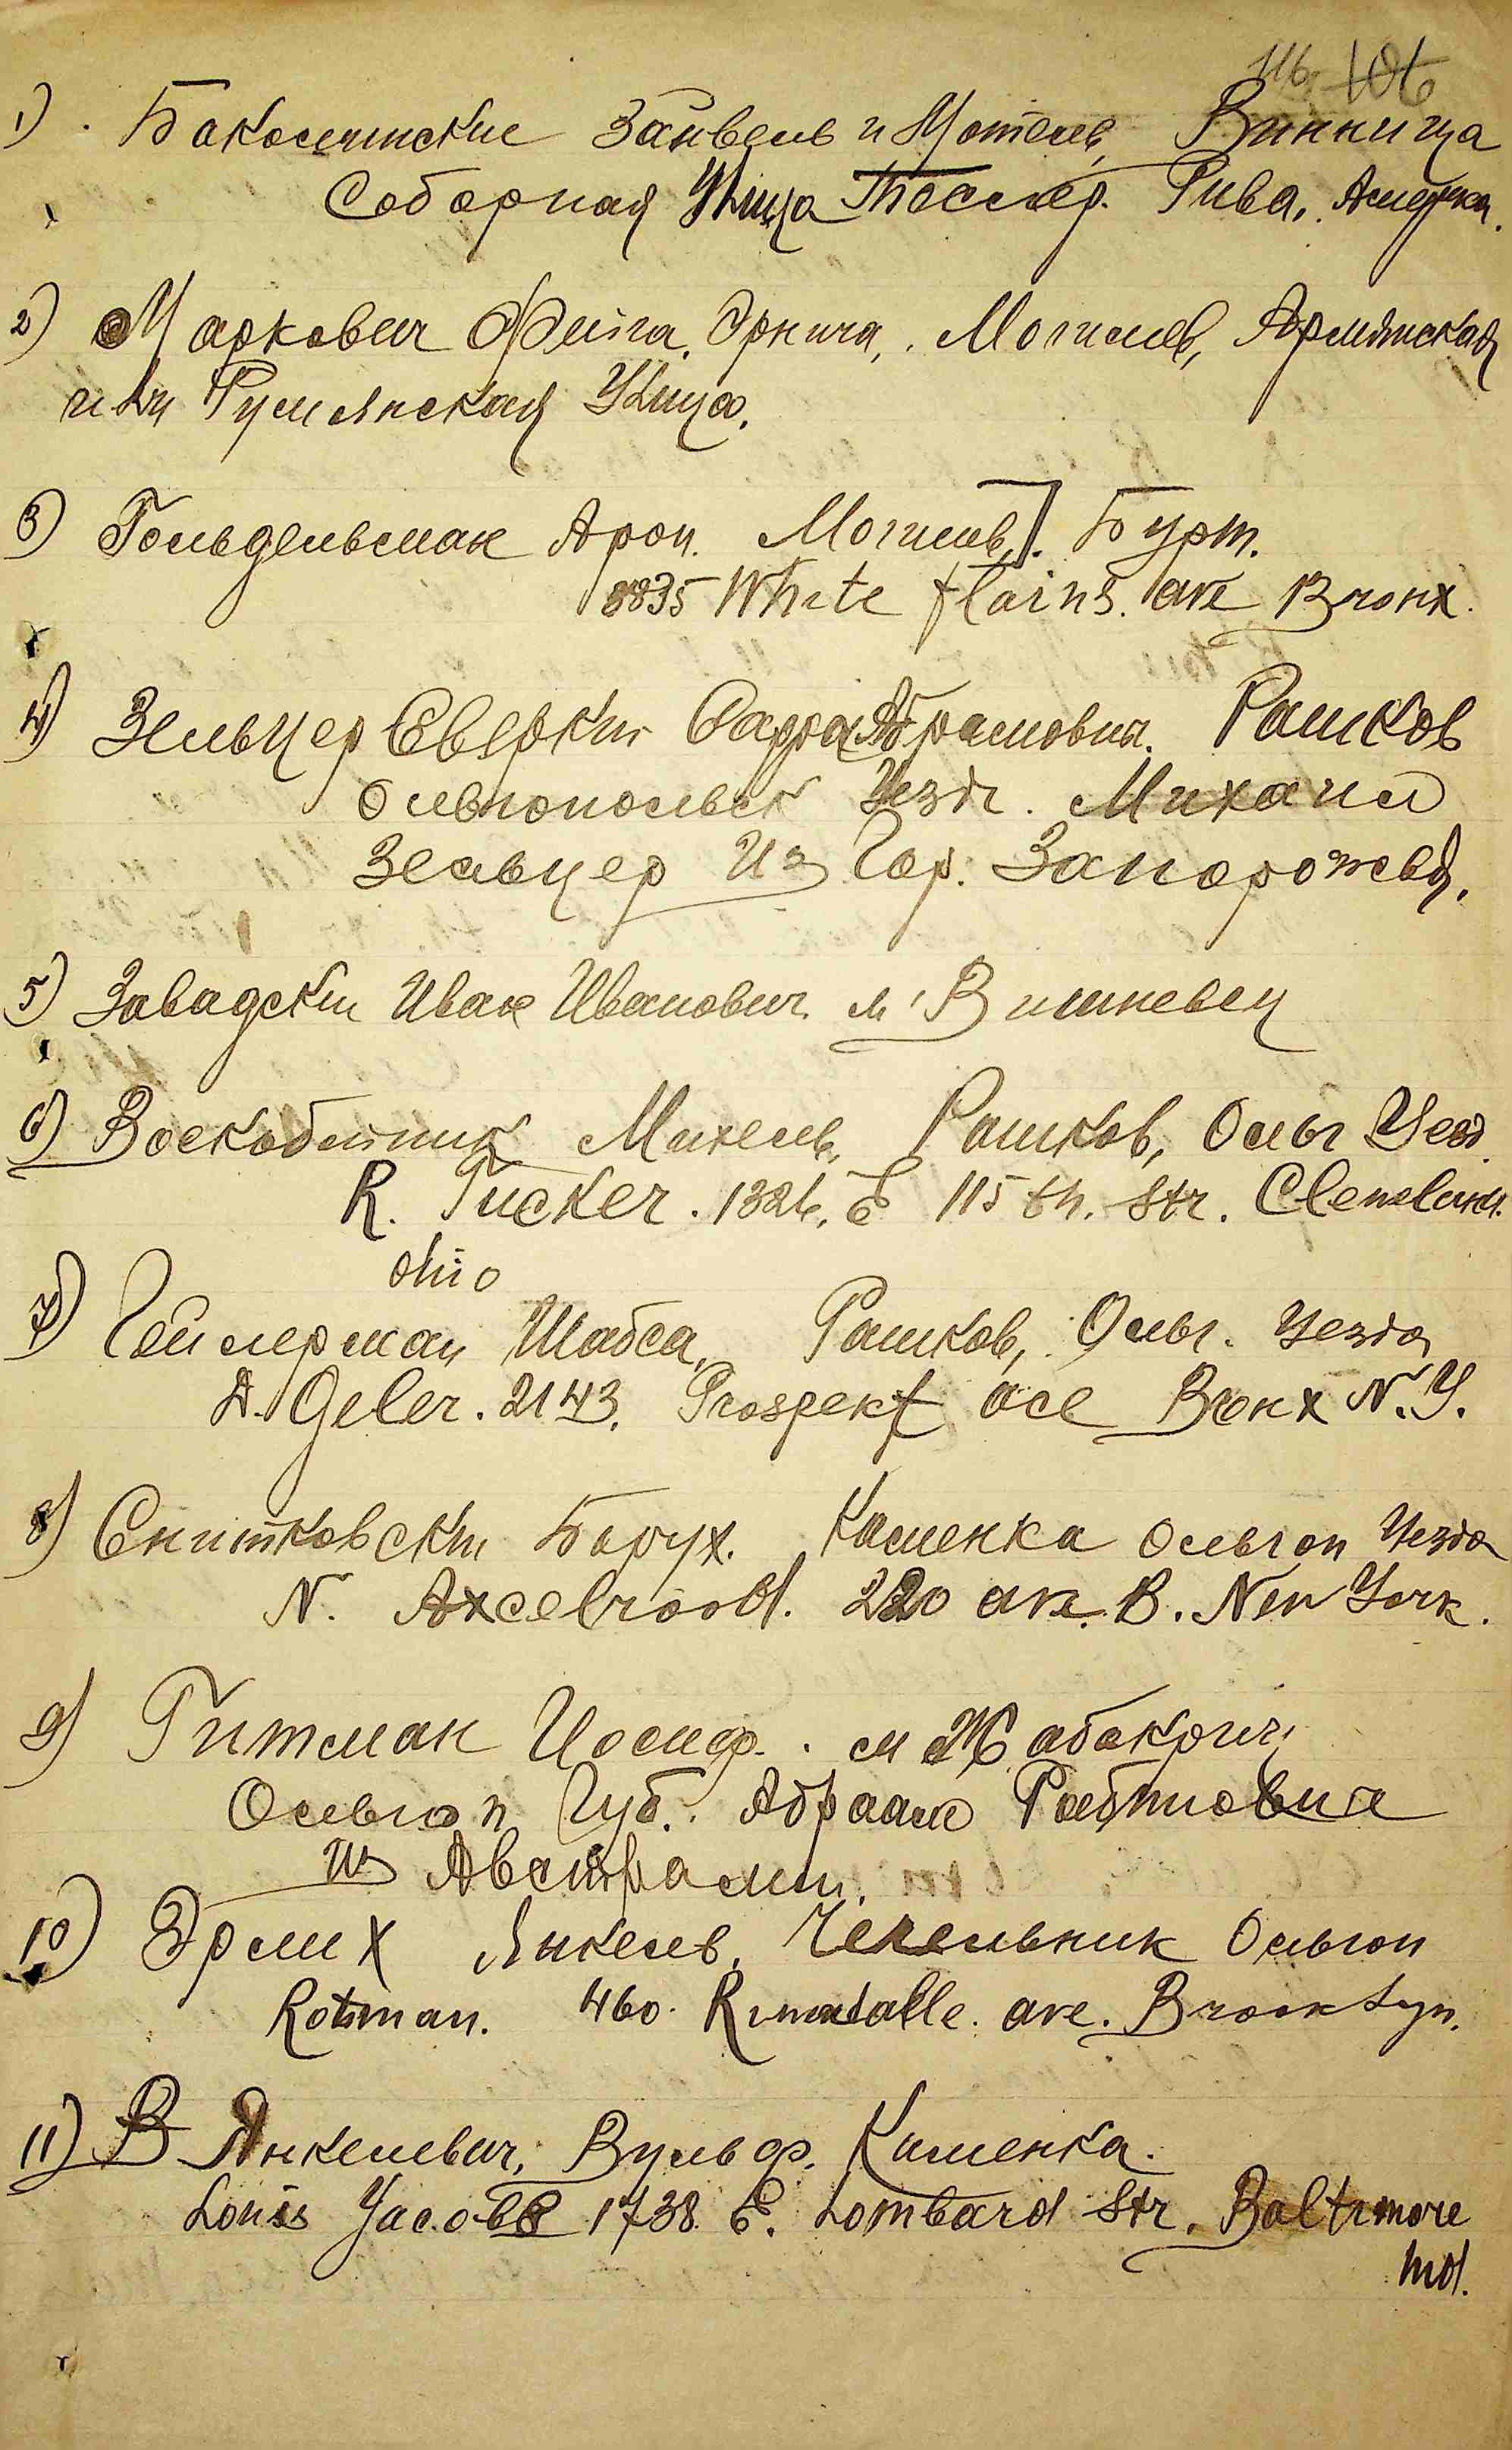 116
1) Бакосчинские Зайвель и Мотель, Винница
Соборная Улица Теслер. Рива, Америка.
2) Маркович Фейга, Эрнича, Могилев, Армянская
или Румянская Улица.
3) Гольдельман Арон. Могилев]. Бурт.
8835 White plains. ave Bronx.
4) Зельцер Еверкин Сарра Абрамовна. Рашков
Ольгопольск Уезда. Михаил
Зельцер Из Гор. Запорожья,
5) Завадски Иван Иванович. м Вишневец
6) Воскобойник Михель, Рашков, Ольг Уезд.
R. Tucker. 1326. E 115 th. Str. Cleveland.
Ohio
7) Геймерман Шабса, Рашков, Ольг. Уезда
A. Geler. 2143. Prospekt ave Bronx N.Y.
8) Снитковски Барух. Каменка Ольгоп Уезда
N. Axcelrood. 220 ave. B. New York.
9) Гитман Иосиф. м Жабокрич
Ольгоп Губ. Абраам
из Австралии.
10) Эрлих Янкель, Чечельник Ольгоп
Rotman. 460. ave. Brooklyn.
11) В Янкелевич, Вульф. Каменка.
Louis Jacobs 1738. E. Lombard Str. Baltimore
Md.